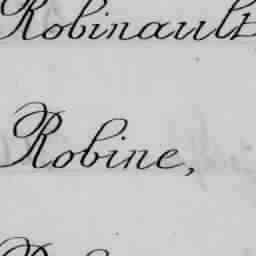 Robinault
Robine,